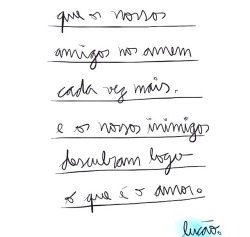 que os nossos
amigos nos amem
cada vez mais.
e os nossos inimigos
descubram logo
o que é o amor.
lucão.